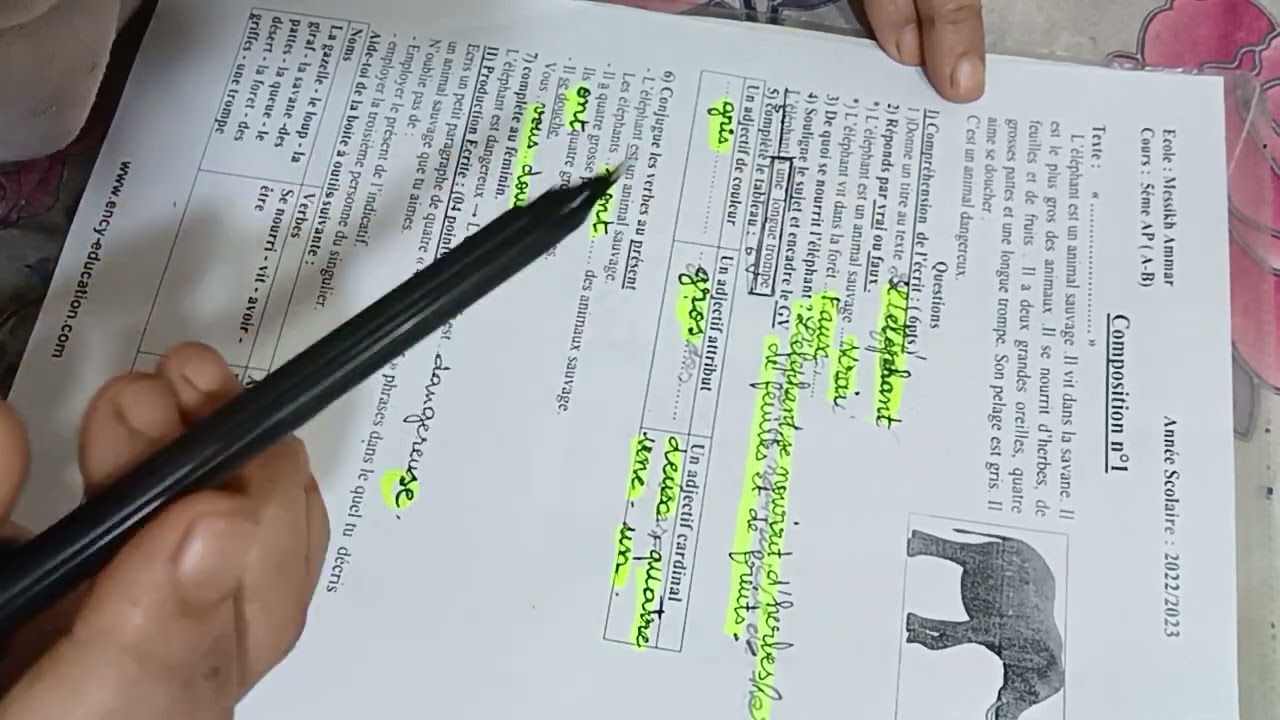 Ecole : Messikh Ammar Année Scolaire : 2022/2023
Cours : 5éme AP ( A-B)
Composition n°1
Texte : « ........................ »
L'éléphant est un animal sauvage .Il vit dans la savane. Il
est le plus gros des animaux .Il se nourrit d'herbes, de
feuilles et de fruits . Il a deux grandes oreilles, quatre
grosses pattes et une longue trompe. Son pelage est gris. Il
aime se doucher.
C'est un animal dangereux.
Questions
I) Compréhension de l'écrit : ( 6pts )
1 )Donne un titre au texte L'éléphant
2) Réponds par vrai ou faux.
*) L'éléphant est un animal sauvage .... vrai
*) L'éléphant vit dans la forêt .. Faux
3) De quoi se nourrit l'éléphant ? L'éléphant se nourrit d'herbes
de feuilles et de fruits.
4) Souligne le sujet et encadre le GV
L'éléphant a une longue trompe.
5) complète le tableau :
Un adjectif de couleur Un adjectif attribut Un adjectif cardinal
gris gros deux - quatre
une - un.
6) Conjugue les verbes au présent
- L'éléphant est un animal sauvage.
Les éléphants sont ..... des animaux sauvage.
- Il a quatre grosse
Ils ont quatre
- Il se douche.
Vous vous dou
7) complète au féminin.
L'éléphant est dangereux → L est dangereuse.
II) Production Ecrite : (04 point
Ecris un petit paragraphe de quatre » phrases dans le quel tu décris
un animal sauvage que tu aimes.
N'oublie pas de :
- Employer le présent de l'indicatif.
- employer la troisième personne du singulier.
Aide-toi de la boite à outils suivante :
Noms Verbes
La gazelle - le loup - la Se nourri - vit - avoir -
giraf - la savane -des être
pattes - la queue - le
désert - la forer - des
griffes - une trompe
www.ency-education.com